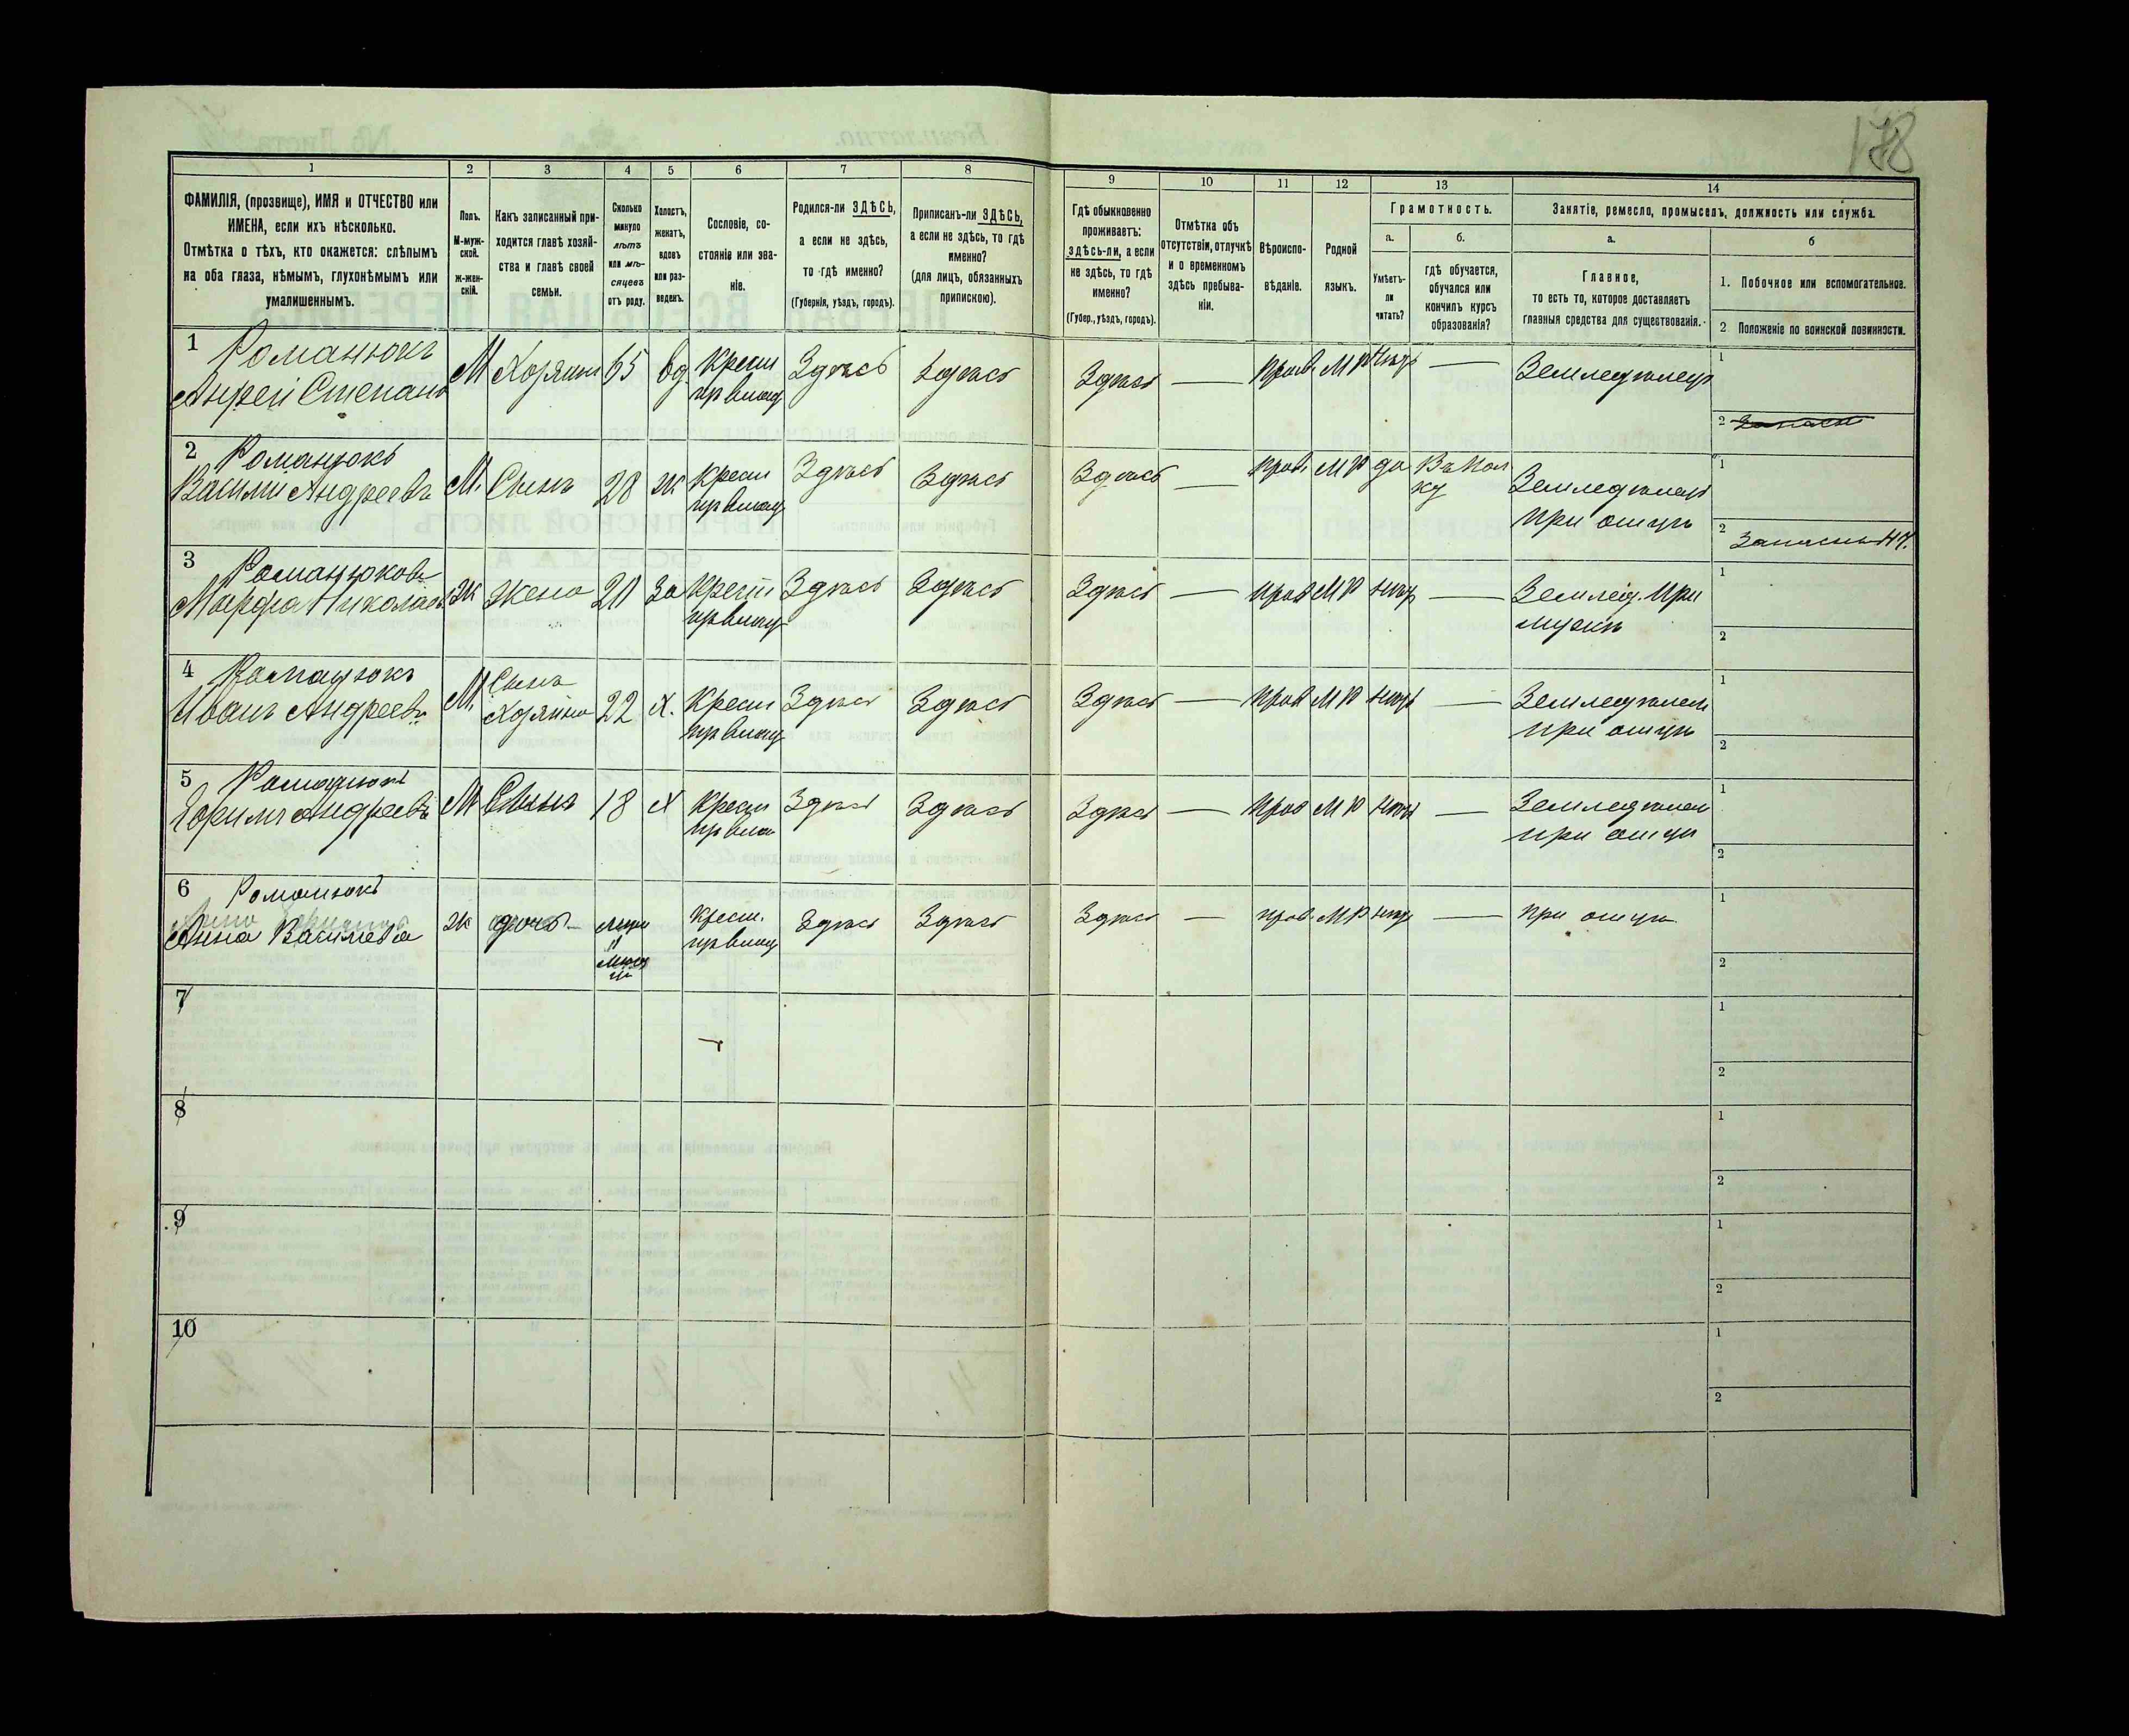 178
1
2
3
4
5
6
7
8
9
10
11
12
13
14
ФАМИЛІЯ, (прозвище), ИМЯ и ОТЧЕСТВО или
ИМЕНА, если ихъ нѣсколько.
Отмѣтка о тѣхъ, кто окажется: слѣпымъ
на оба глаза, нѣмымъ, глухонѣмымъ или
умалишеннымъ.
Полъ.
М-муж-
ской.
ж-жен-
скій.
Какъ записанный при-
ходится главѣ хозяй-
ства и главѣ своей
семьи.
Сколько
минуло
лѣтъ
или мѣ-
сяцевъ
отъ роду.
Холостъ,
женатъ,
вдовъ
или раз-
веденъ.
Сословіе, со-
стояніе или зва-
ніе.
Родился-ли ЗДѢСЬ,
а если не здѣсь,
то гдѣ именно?
(Губернія, уѣздъ, городъ).
Приписанъ-ли ЗДѢСЬ,
а если не здѣсь, то гдѣ
именно?
(для лицъ, обязанныхъ
припискою).
Гдѣ обыкновенно
проживаетъ:
здѣсь-ли, а если
не здѣсь, то гдѣ
именно?
(Губер., уѣздъ, городъ).
Отмѣтка объ
отсутствіи, отлучкѣ
и о временномъ
здѣсь пребыва-
ніи.
Вѣроиспо-
вѣданіе.
Родной
языкъ.
Грамотность.
а.
Умѣетъ-
ли
читать?
б.
гдѣ обучается,
обучался или
кончилъ курсъ
образованія?
Занятіе, ремесло, промыселъ, должность или служба.
а.
Главное,
то есть то, которое доставляетъ
главныя средства для существованія.
б
1. Побочное или вспомогательное.
2 Положеніе по воинской повинности.
1 Романюкъ
Андрей Степанъ
М Хозяинъ 65 вд. Крест Здѣсь Здѣсь Здѣсь — Прав. М Р Нѣтъ — Земледѣлецъ
1
2
2 Романюкъ
Василий Андреевъ
М. Сынъ 28 ж Крест Здѣсь Здѣсь Здѣсь — Прав. М Р да Въ Пол
ку
Земледѣлецъ
при отцѣ
1
2
3 Романюкова
Марфа Николаев
Ж Жена 20 За Крест Здѣсь Здѣсь Здѣсь — Прав М Р нѣтъ — Землед. При
мужѣ
1
2
4 Романюкъ
Иванъ Андреевъ
М. Сынъ
Хозяина
22 Х. Крест Здѣсь Здѣсь Здѣсь — Прав М Р нѣтъ — Земледѣлец
при отцѣ
1
2
5 Романюкъ
Ефимъ Андреевъ
М Сынъ 18 Х Крест Здѣсь Здѣсь Здѣсь — Прав М Р нѣтъ — Земледѣлец
при отцѣ
1
2
6 Романюкъ
Анна Васильева
Ж дочь Крест. Здѣсь Здѣсь Здѣсь — прав. М Р нѣтъ — при отцѣ
1
2
7
1
2
8
1
2
9
1
2
10
1
2